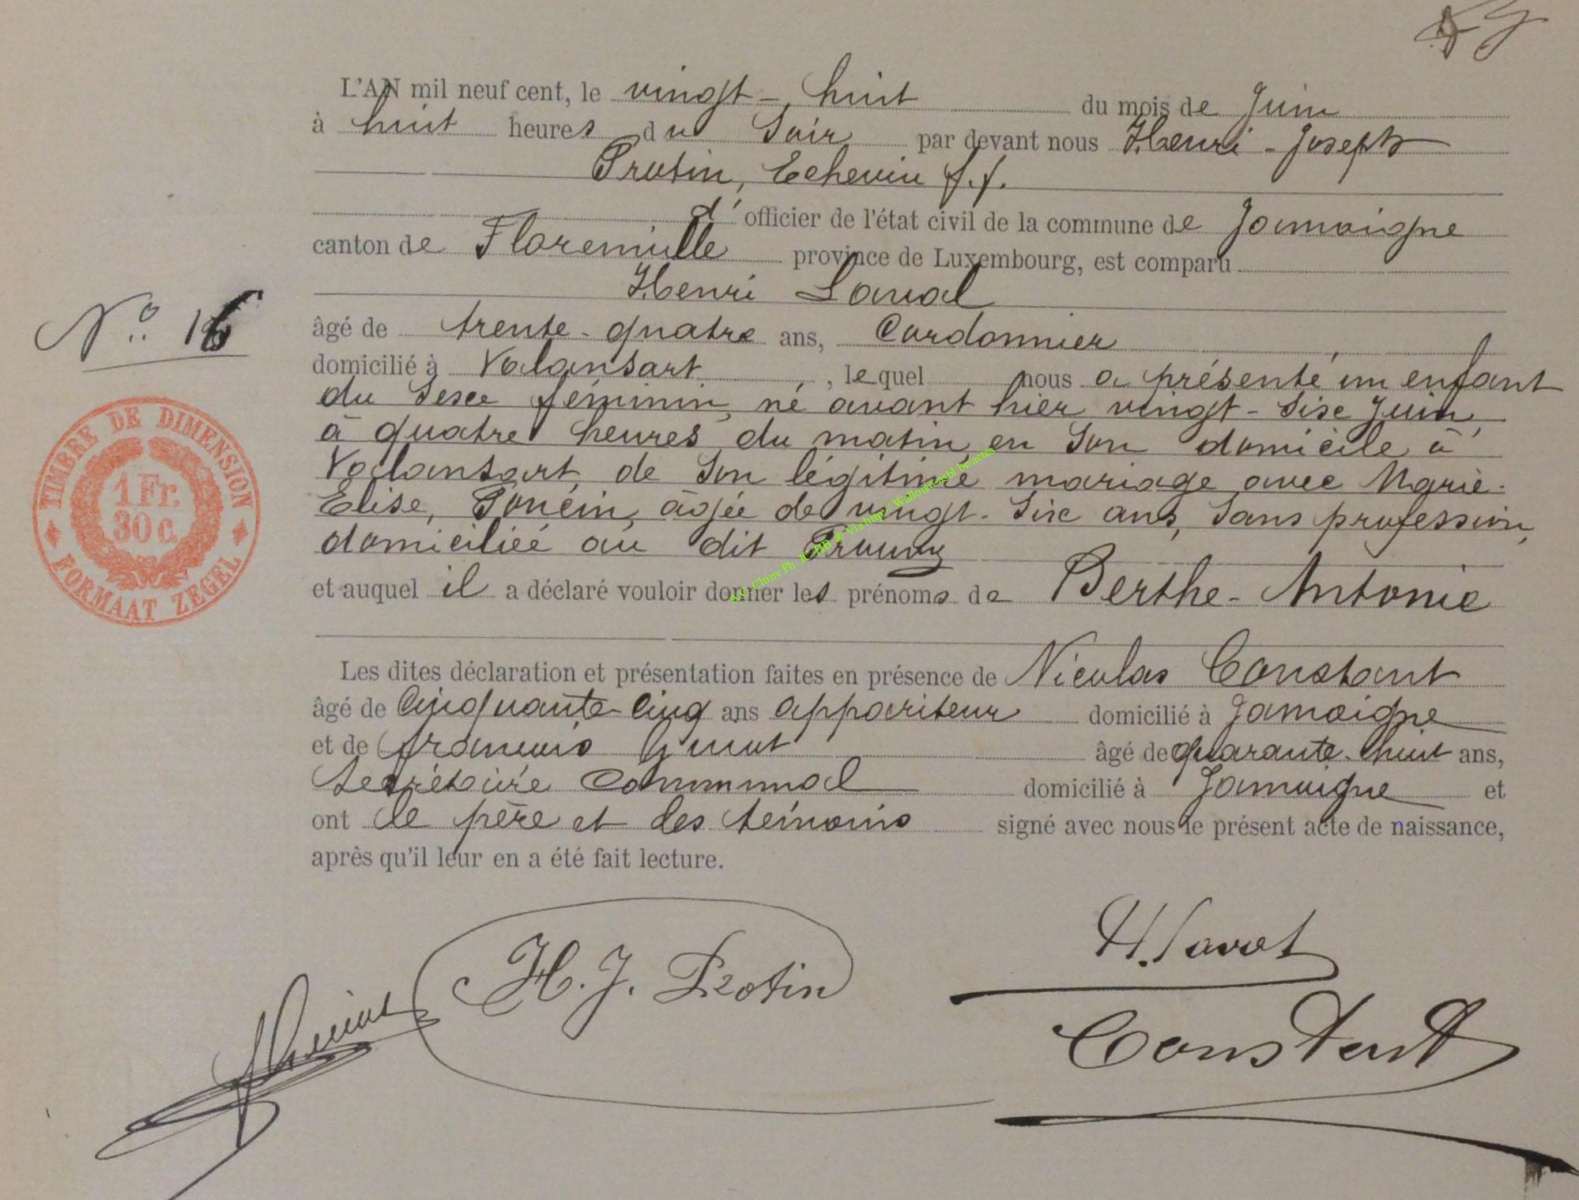 L'AN mil neuf cent, le vingt-huit du mois de Juin
à huit heures du Soir par devant nous Henri-Joseph
Protin, Echevin f.f.
d'officier de l'état civil de la commune de Jamoigne
canton de Florenville province de Luxembourg, est comparu
Henri Laval
N° 16
âgé de trente-quatre ans, Cordonnier
domicilié à Valansart, lequel nous a présenté un enfant
du Sexe féminin, né avant hier vingt-Six Juin,
à quatre heures du matin en Son domicile à
Valansart, de Son légitime mariage avec Marie-
Elise, âgée de vingt-Six ans, Sans profession,
domiciliée au dit Prouvy
et auquel il a déclaré vouloir donner les prénoms de Berthe-Antonie
TIMBRE DE DIMENSION
1 Fr.
30 c.
FORMAAT ZEGEL
Les dites déclaration et présentation faites en présence de Nicolas Constant
âgé de Cinquante-Cinq ans appariteur domicilié à Jamoigne
et de françois âgé de quarante-huit ans,
Secrétaire Communal domicilié à Jamoigne et
ont le père et les témoins signé avec nous le présent acte de naissance,
après qu'il leur en a été fait lecture.
H. Laval
H. J. Protin
Constant